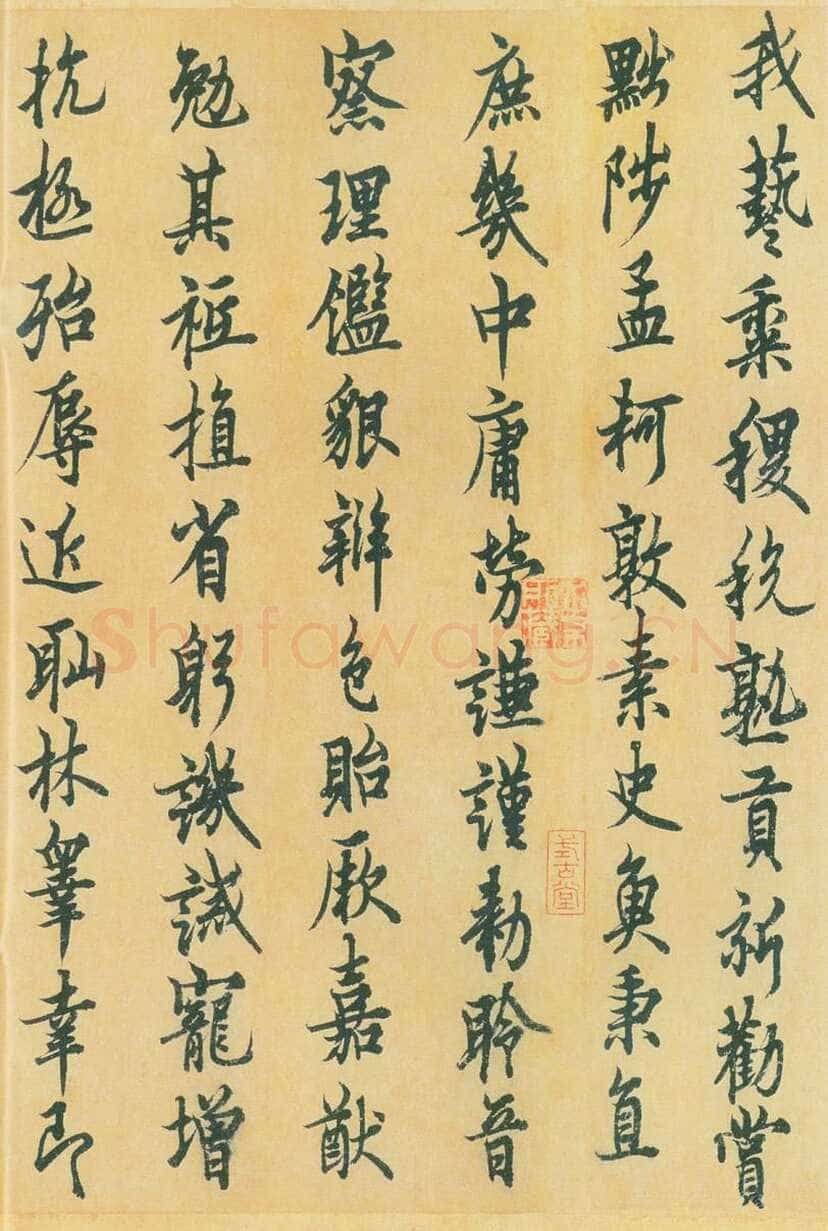 我藝黍稷稅熟貢新勸賞
黜陟孟軻敦素史魚秉直
庶幾中庸勞謙謹勑聆音
察理鑑貌辨色貽厥嘉猷
勉其祗植省躬譏誡寵增
抗極殆辱近耻林睾幸即
Shufawang.CN